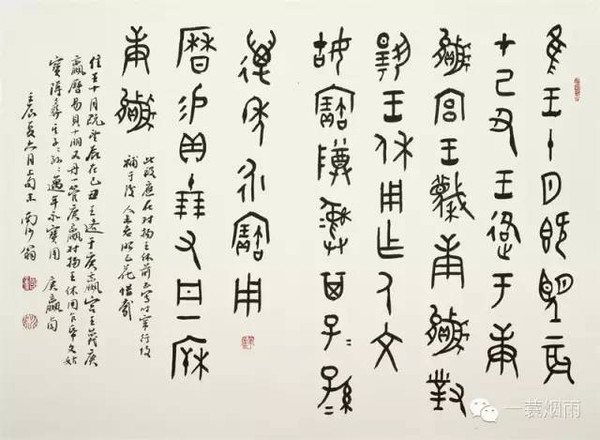 隹王十月既望辰
才己丑王逄于庚
嬴宫王蔑庚嬴對
揚王休用乍氒文
姑寶尊彝其子=孫=
萬年永寶用
此段應在对揚王休前
補于後 人老眼已花惜哉
曆易貝十朋又丹一
庚嬴
隹王十月既望辰在己丑王逄于庚嬴宫王蔑庚
嬴曆易貝十朋又丹一管庚嬴对揚王休用乍氒文姑
寶尊彝其子=孫=萬年永寶用 庚嬴卣
壬辰夏六月上旬末 南沙翁
一蓑烟雨